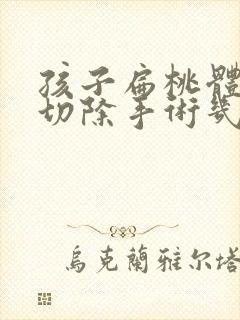 孩子扁桃體
切除手術幾
烏克蘭雅尔塔